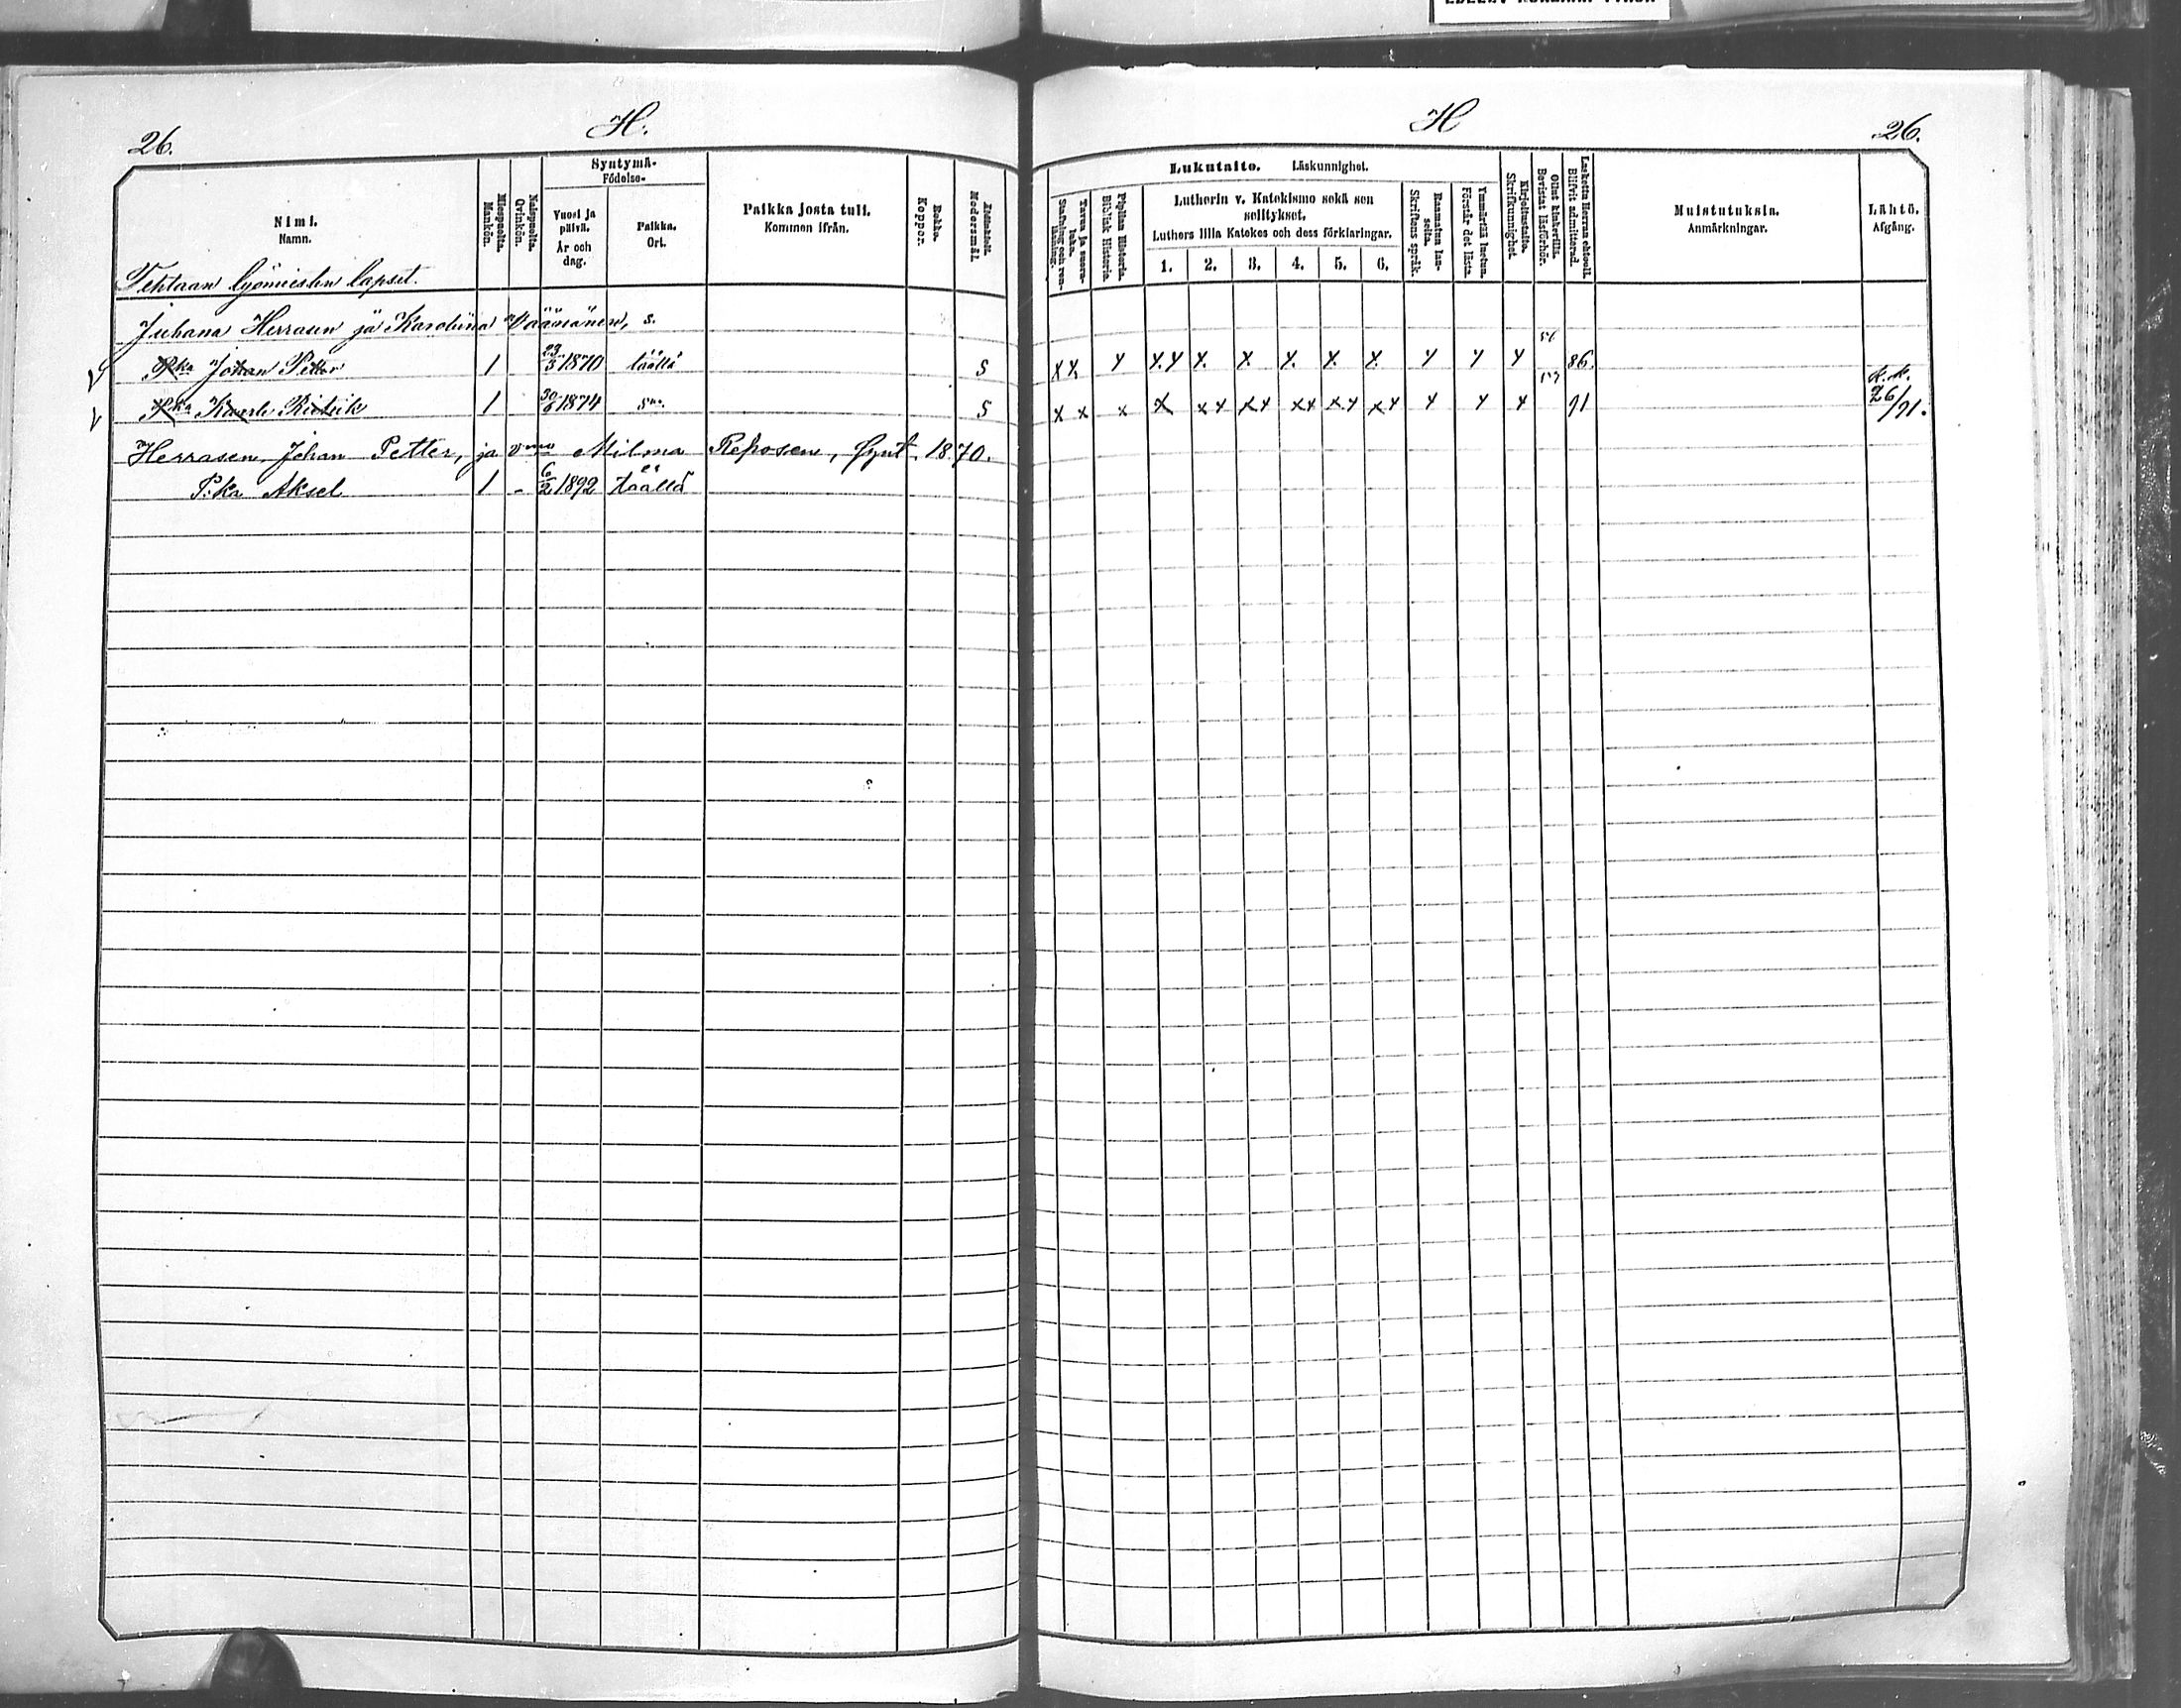 26. H.
Nimi. Namn.
Miespuolta. Mankön.
Naispuolta. Qvinkön.
Syntymä- Födelse-
Vuosi ja päivä. År och dag.
Paikka. Ort.
Paikka josta tuli. Kommen ifrån.
Rokko. Koppor.
Modersmål.
Tehtaan työmiesten lapset.
Juhana Herrasen ja Karoliina Väänänen, s.
P:ka Johan Petter 1 23/3 1870 täällä S
P:ka Kaarle Rietrik 1 30/6 1874 S
Herrasen, Johan Petter, ja v:mo Milma Reposen, synt. 1870.
P:ka Aksel 1 - 6/2 1892 täällä
H 26.
Lukutaito. Läskunnighet.
Tavaa ja suora- luku. Stafning och ren- läsning.
Piplian Historia. Biblisk Historia.
Lutherin v. Katekismo sekä sen selitykset.
Luthers lilla Katekes och dess förklaringar.
1. 2. 3. 4. 5. 6.
Raamatun lau- seita. Skriftens språk.
Ymmärtää luetun. Förstår det lästa.
Kirjoitustaito. Skrifkunnighet.
Ollut kinkerillä. Bevistat läsförhör.
Laskettu Herran ehtooll. Blifvit admitterad.
Muistutuksia. Anmärkningar.
Lähtö. Afgång.
x x. x x. x x. x. x. x. x. x x x 86.
x x x x x x x x x x x x x x x x x 91 26/91.